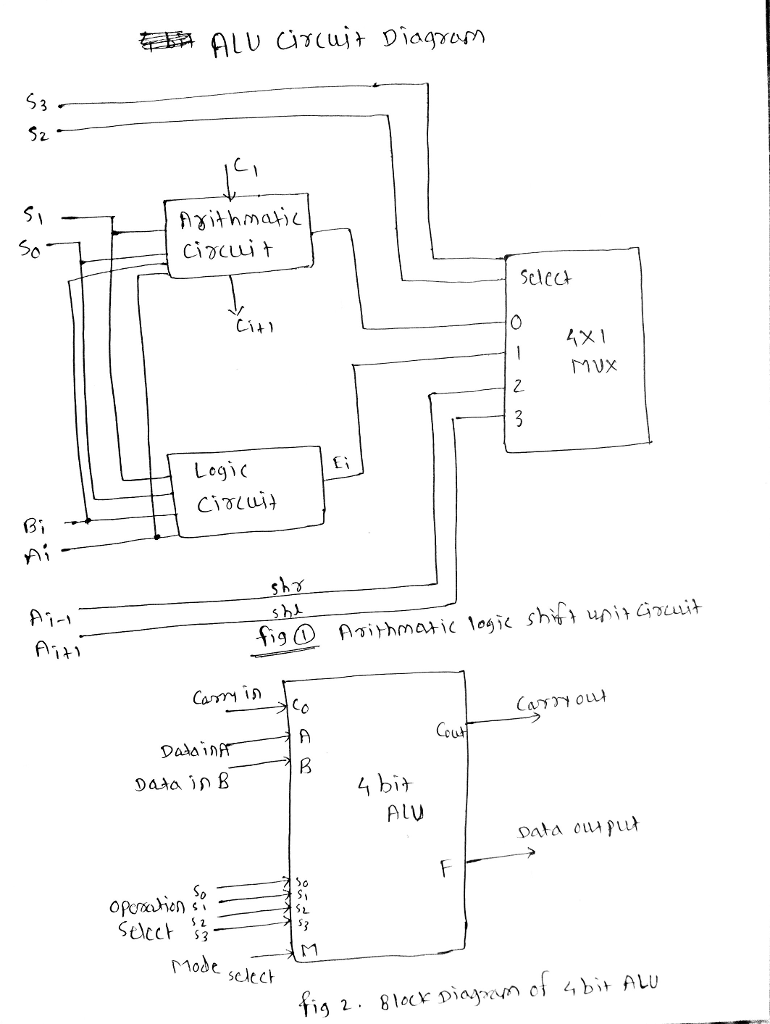 ALU Circuit Diagram
S3
S2
C1
S1
S0
Arithmatic
Circuit
Ci+1
Select
0
1
2
3
4X1
MUX
Logic
Circuit
Ei
Bi
Ai
shr
Ai-1
shl
Ai+1
fig ① Arithmatic logic shift unit Circuit
Carry in
C0
Carry out
Cout
Data in A
A
Data in B
B
4 bit
ALU
Data output
F
Operation
Select
S0
S1
S2
S3
S0
S1
S2
S3
Mode select
M
fig 2. Block Diagram of 4 bit ALU